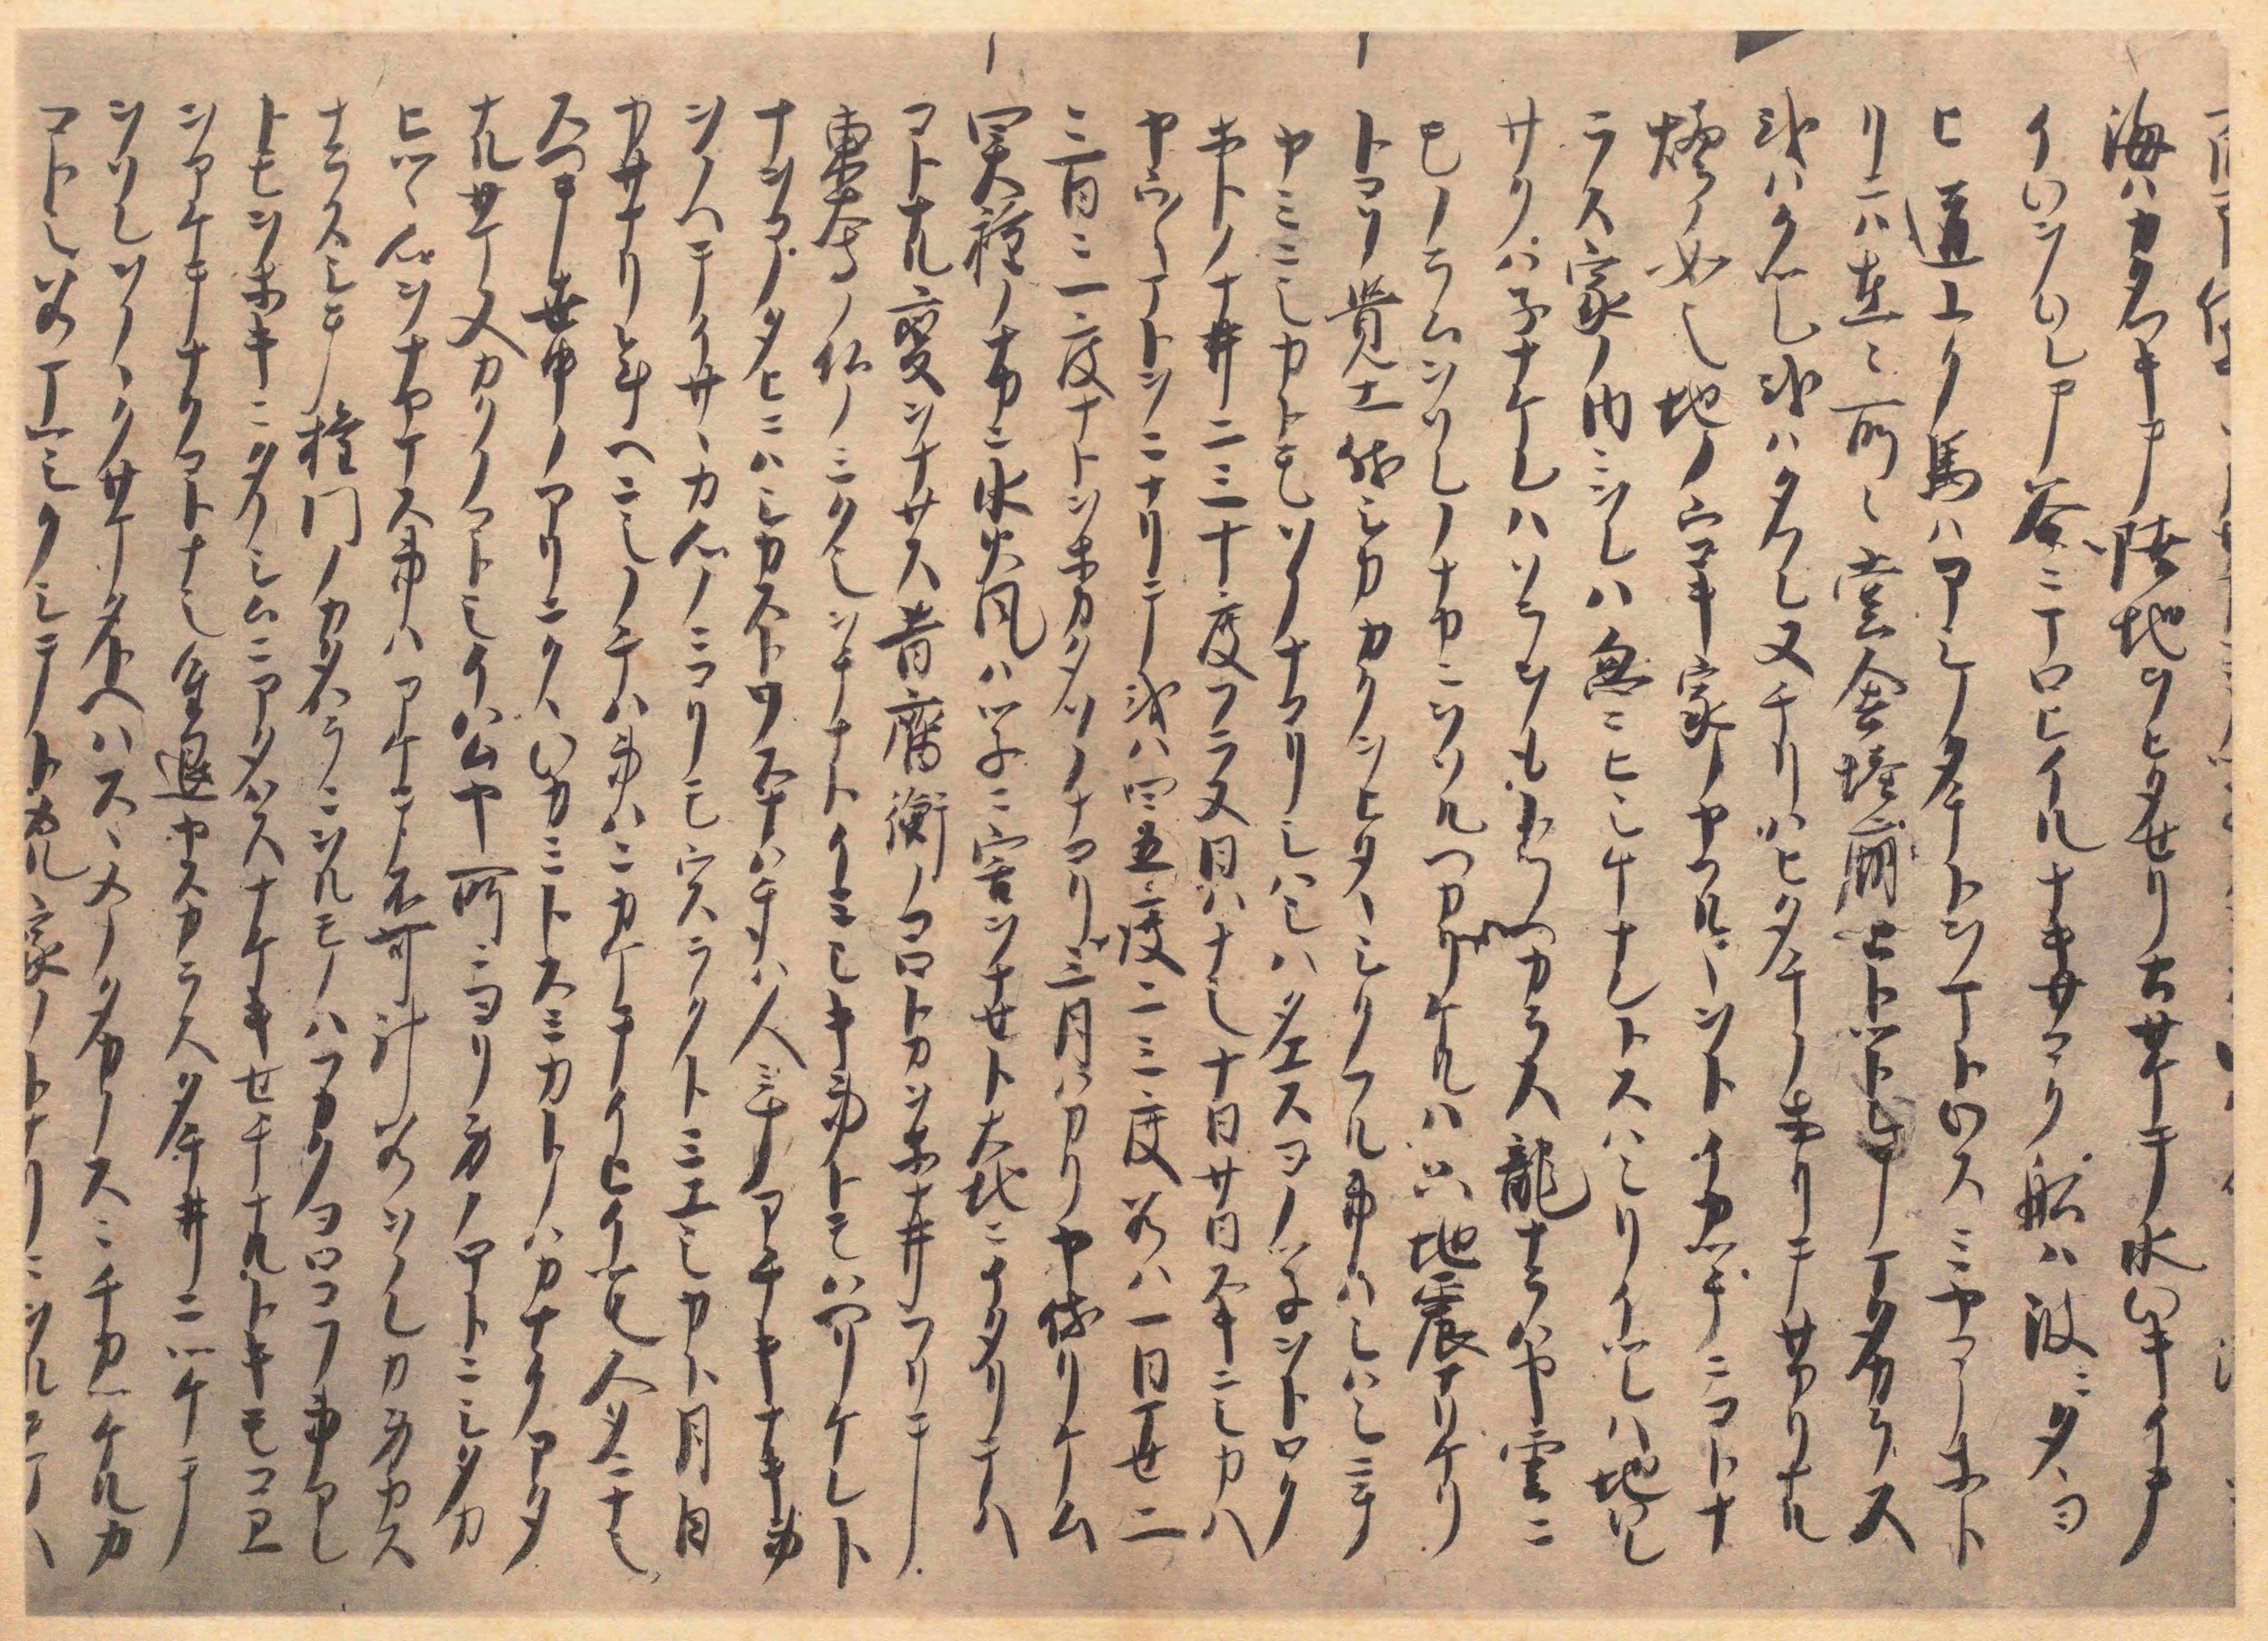 海ハカタフキテ陸地ヲヒタセリ土サケテ水ワキイテ
イワヲワレテ谷ニマロヒイルナキサコク船ハ波ニタヽヨ
ヒ道ユク馬ハアシノタチトヲマトワスミヤコノホト
リニハ在々所々堂舎塔廟ヒトツトシテマタカラス
或ハクツレ或ハタフレヌチリハヒタチノホリテサカリナル
煙ノ如シ地ノウコキ家ノヤフルヽヲトイカツチニコトナ
ラス家ノ内ニヲレハ忽ニヒシケナントスハシリイツレハ地ワレ
サクハネナケレハソラヲモトフヘカラス龍ナラハヤ雲ニ
モノラムヲソレノナカニヲソルヘカリケルハ只地震ナリケリ
トコソ覚エ侍シカカクヲヒタヽシクフル事ハシハシニテ
ヤミニシカトモソノナコリシハシハタエスヨノツネヲトロク
ホトノナヰ二三十度フラヌ日ハナシ十日廿日スキニシカハ
ヤウ〱マトヲニナリテ或ハ四五度二三度若ハ一日マセ二
三日ニ一度ナトヲホカタソノナコリ三月ハカリヤ侍リケム
四大種ノナカニ水火風ハツネニ害ヲナセト大地ニイタリテハ
コトナル変ヲナサス昔齊衡ノコロトカヲホナヰフリテ
東大寺ノ仏ノミクシヲチナトイミシキ事トモハヘリケレト
ナヲコノタヒニハシカストソスナハチハ人ミナアチキナキ事
ヲノヘテイサヽカ心ノニコリモウスラクトミエシカト月日
カサナリ年ヘニシノチハ事ハニカケテイヒイツル人タニナシ
スヘテ世中ノアリニクヽワカミトスミカトノハカナクアタ
ナルサマ又カクノコトシイハムヤ所ニヨリ身ノホトニシタカ
ヒツヽ心ヲナヤマス事ハアケテ不可計若ヲノレカ身カス
ナラスシテ権門ノカタハラニヲルモノハフカクヨロコフ事アレ
トモヲホキニタノシムニアタハスナケキセチナルトキモコヱ
ヲアケテナクコトナシ進退ヤスカラスタチヰニツケテ
ヲソレヲノヽクサマタトヘハスヽメノタカノスニチカツケルカ
コトシ若マツシクシテトメル家ノトナリニヲルモノハ